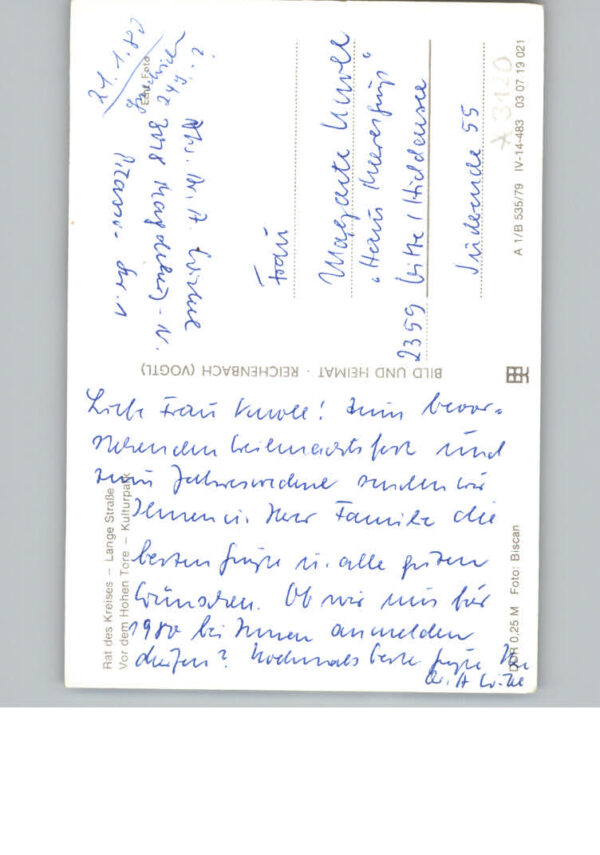 Liebe Frau Knoll! Zum bevor-
stehenden Weihnachtsfest und
zum Jahreswechsel senden wir
Ihnen u. Ihrer Familie die
besten Grüße u. alle guten
Wünschen. Ob wir uns für
1980 bei Ihnen anmelden
dürfen? Nochmals beste Grüße Ihr
Dr. A.
24.1.80
Abs. Dr. A.
3018 Magdeburg-N.
Str. 1
Frau
Margarete Knoll
"Haus Meeresgruß"
2359 Vitte/Hiddensee
Süderende 55
A 3120
Rat des Kreises – Lange Straße
Vor dem Hohen Tore – Kulturpark
BILD UND HEIMAT · REICHENBACH (VOGTL)
Echt Foto
A 1/B 535/79 IV-14-483 03 07 19 021
DDR 0,25 M Foto: Biscan